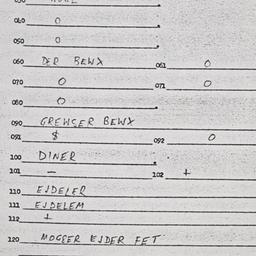 040 0
050 0
060 DER BEWX 061 0
070 0 071 0
080 0
090 GREWSER BEWX
091 $ 092 0
100 DINER
101 - 102 +
110 EJDELER
111 EJDELEM
112 +
120 MOGSER EJDER FET